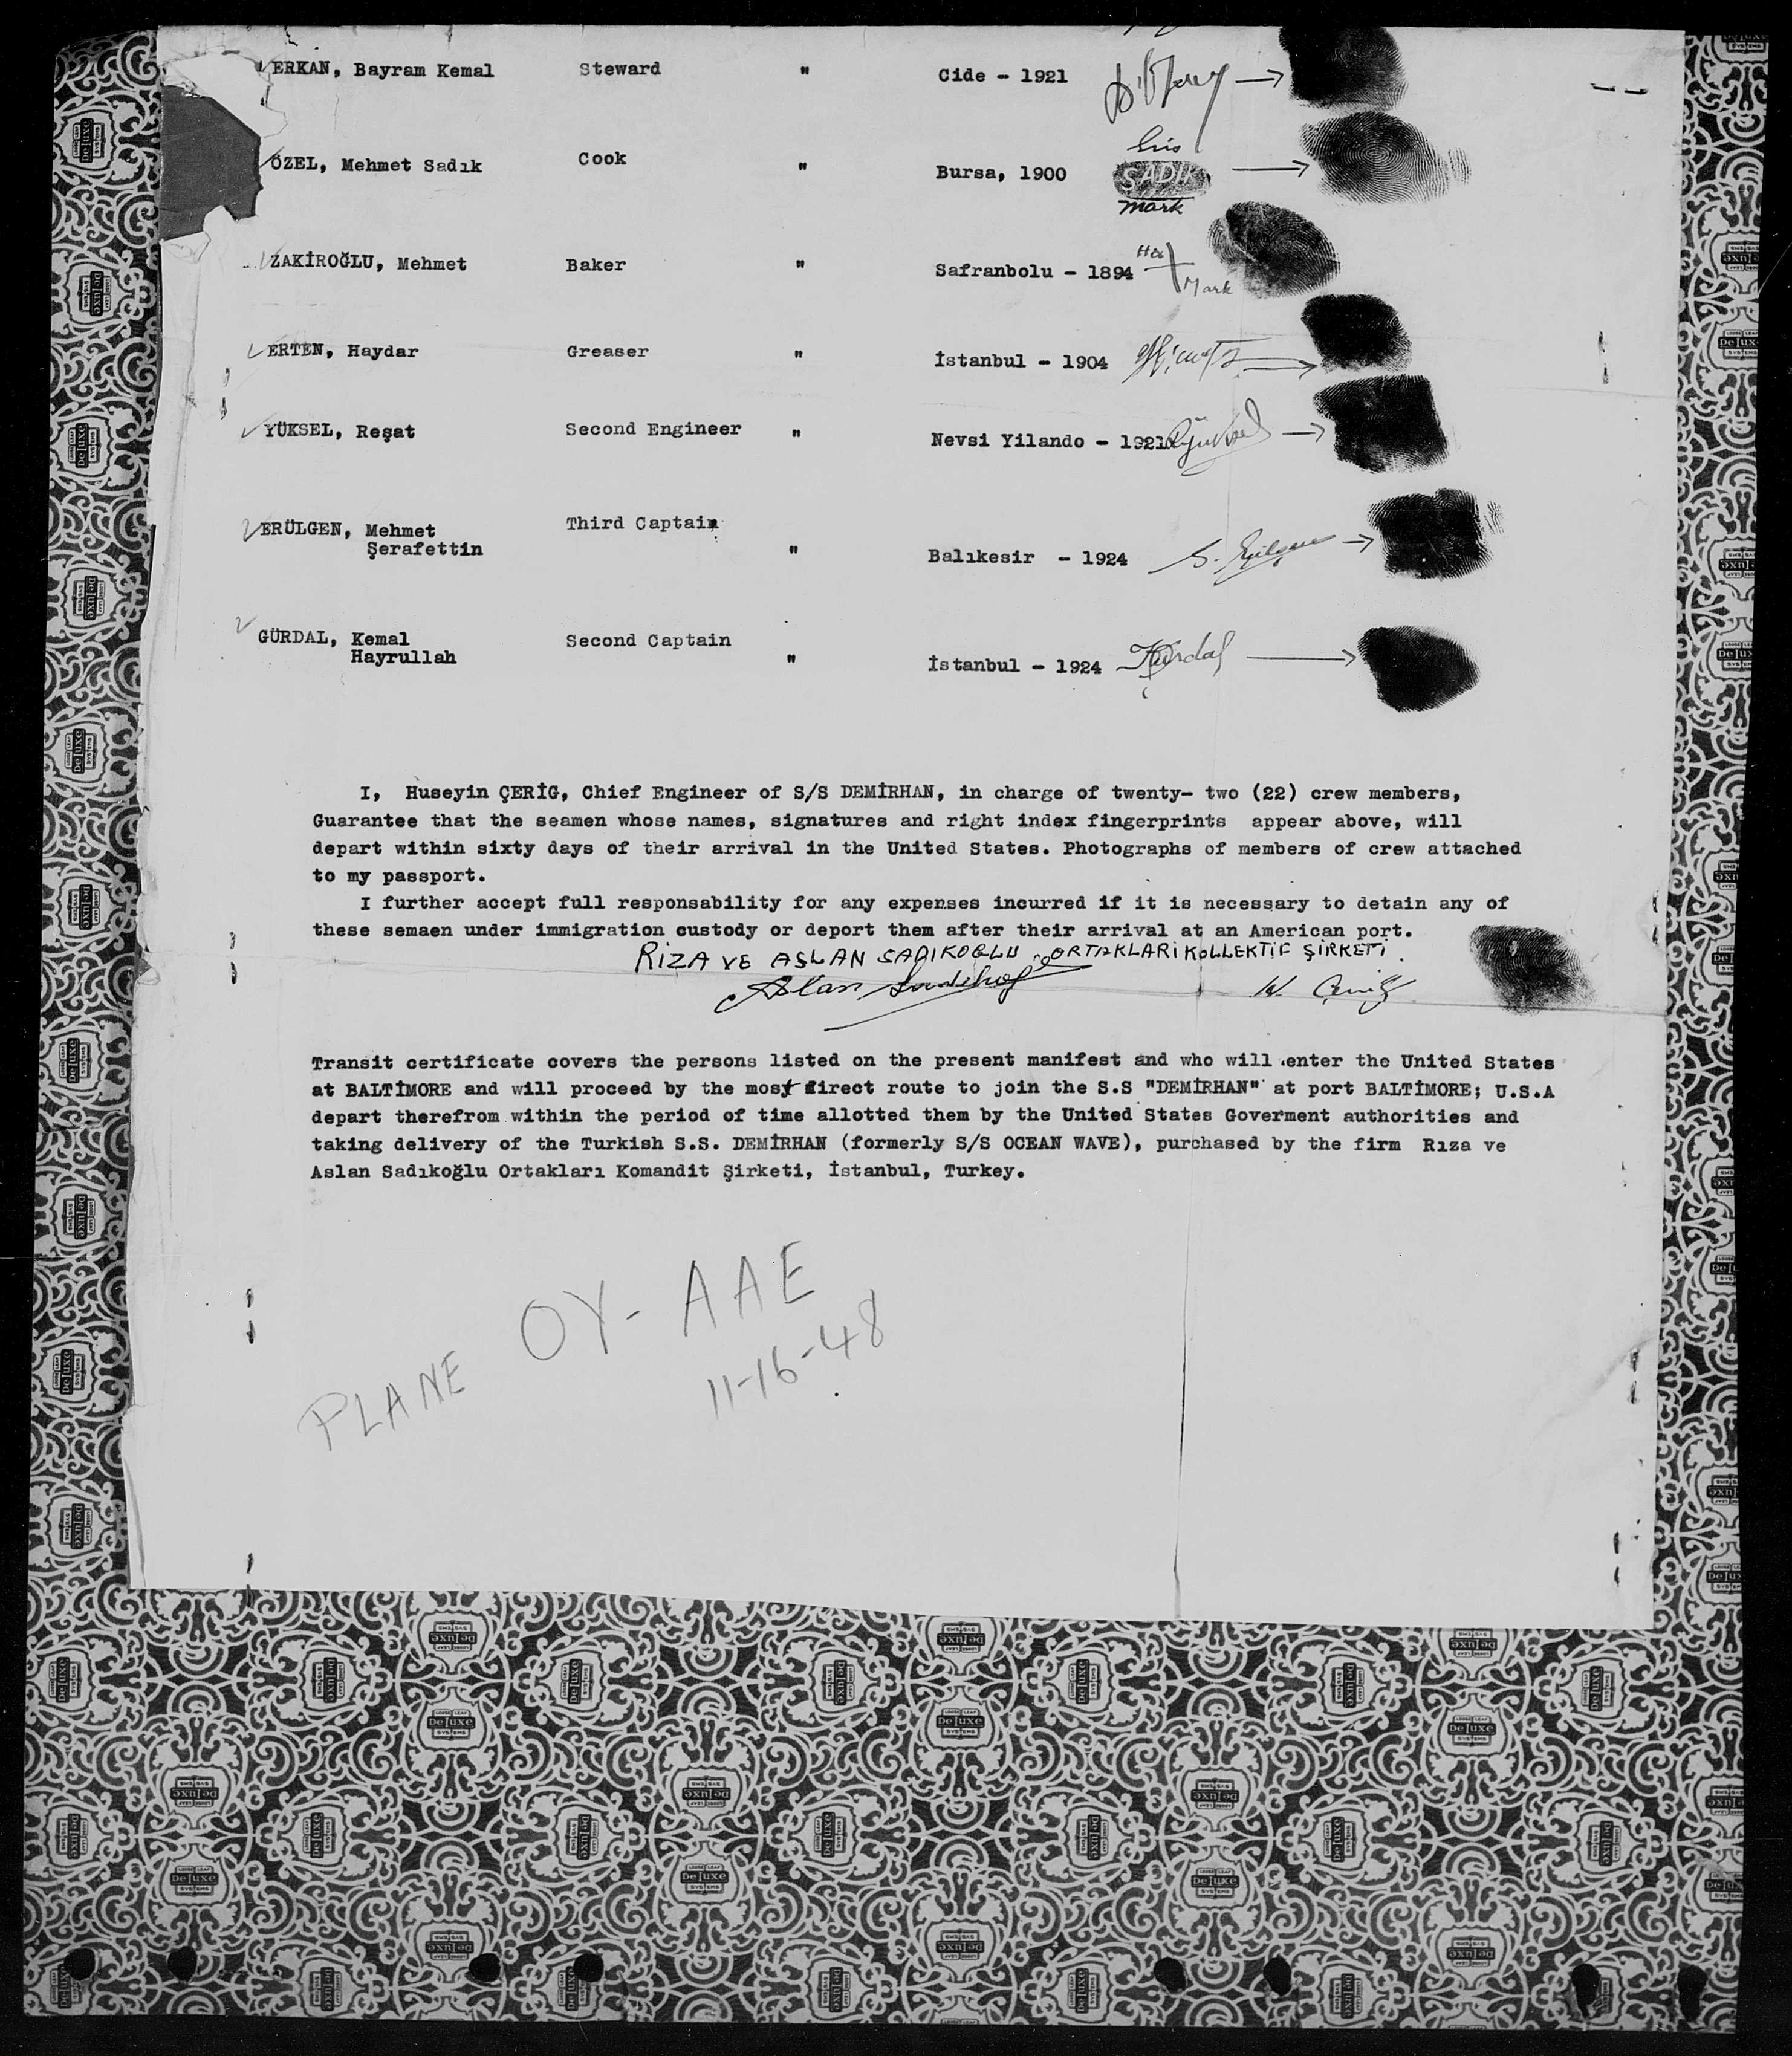 ERKAN, Bayram Kemal Steward " Cide - 1921
ÖZEL, Mehmet Sadık Cook " Bursa, 1900 his SADIK mark
ZAKİROĞLU, Mehmet Baker " Safranbolu - 1894 His Mark
ERTEN, Haydar Greaser " İstanbul - 1904
YÜKSEL, Reşat Second Engineer " Nevsi Yilando - 1921 RYüksel
ERÜLGEN, Mehmet Third Captain
Şerafettin " Balıkesir - 1924 S. Erülgen
GÜRDAL, Kemal Second Captain
Hayrullah " İstanbul - 1924 KGürdal
I, Huseyin ÇERİG, Chief Engineer of S/S DEMİRHAN, in charge of twenty- two (22) crew members,
Guarantee that the seamen whose names, signatures and right index fingerprints appear above, will
depart within sixty days of their arrival in the United States. Photographs of members of crew attached
to my passport.
I further accept full responsability for any expenses incurred if it is necessary to detain any of
these semaen under immigration custody or deport them after their arrival at an American port.
RIZA VE ASLAN SADIKOGLU ORTAKLARI KOLLEKTİF ŞİRKETİ.
Aslan Sadıkoğlu H. Çeriğ
Transit certificate covers the persons listed on the present manifest and who will enter the United States
at BALTİMORE and will proceed by the most direct route to join the S.S "DEMİRHAN" at port BALTİMORE; U.S.A
depart therefrom within the period of time allotted them by the United States Goverment authorities and
taking delivery of the Turkish S.S. DEMİRHAN (formerly S/S OCEAN WAVE), purchased by the firm Rıza ve
Aslan Sadıkoğlu Ortakları Komandit Şirketi, İstanbul, Turkey.
PLANE OY- AAE
11-16-48